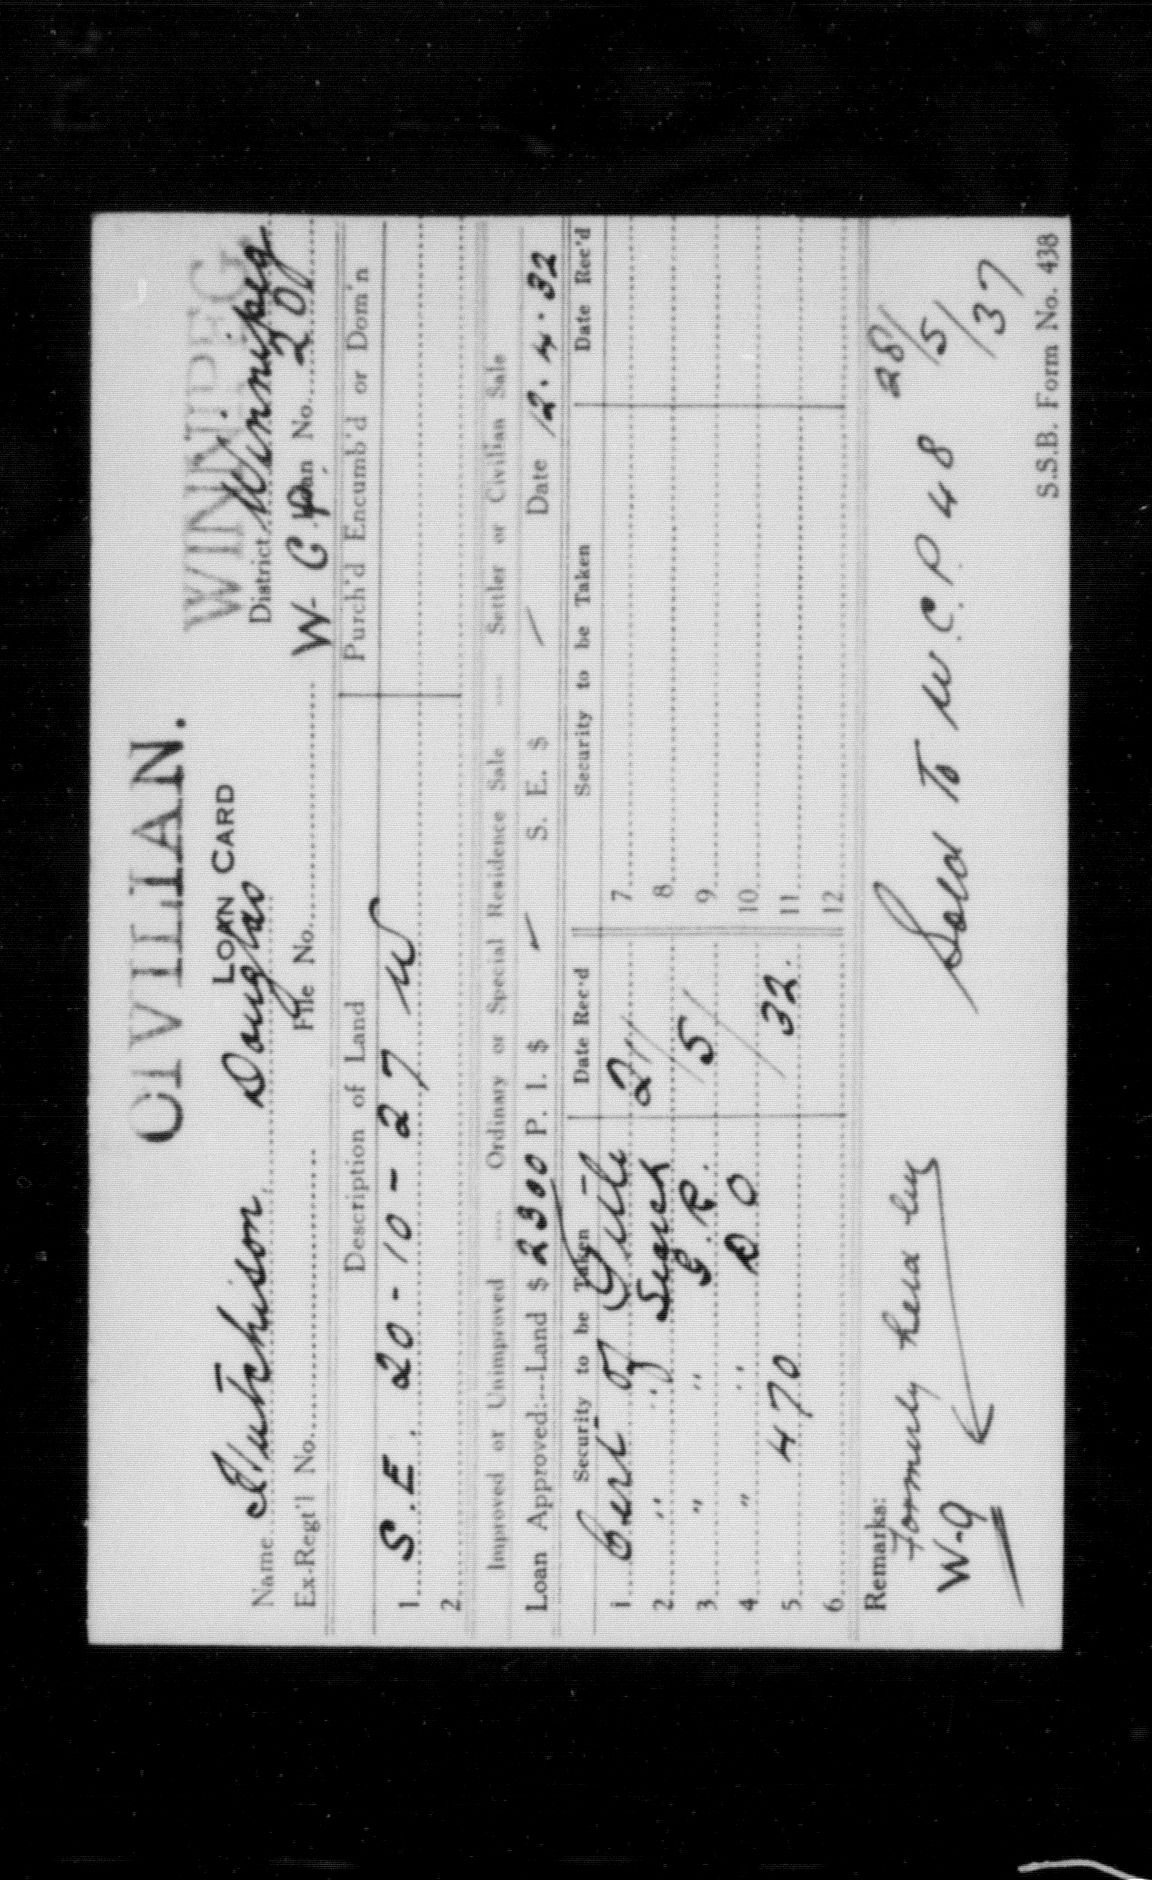 CIVILIAN.
WINNIPEG
LOAN CARD
Name Hutchison, Douglas District Winnipeg
Ex-Regt'l No. File No. W. C P. Loan No. 201
Description of Land Purch'd Encumb'd or Dom'n
1. S.E. 20 - 10 - 27 W
2.
Improved or Unimproved .... Ordinary or Special Residence Sale .... Settler or Civilian Sale
Loan Approved:---Land $ 2300 P. I. $ S. E. $ Date 12.4.32
Security to be Taken Date Rec'd Security to be Taken Date Rec'd
1. Cert of Title 21/ 7.
2. " " Search 5/ 8.
3. " " G.R. 32. 9.
4. " " D O 10.
5. 470 11.
6. 12.
Remarks:
Formerly held by
W-9
Sold To W.C.P. 48 28/5/37
S.S.B. Form No. 438